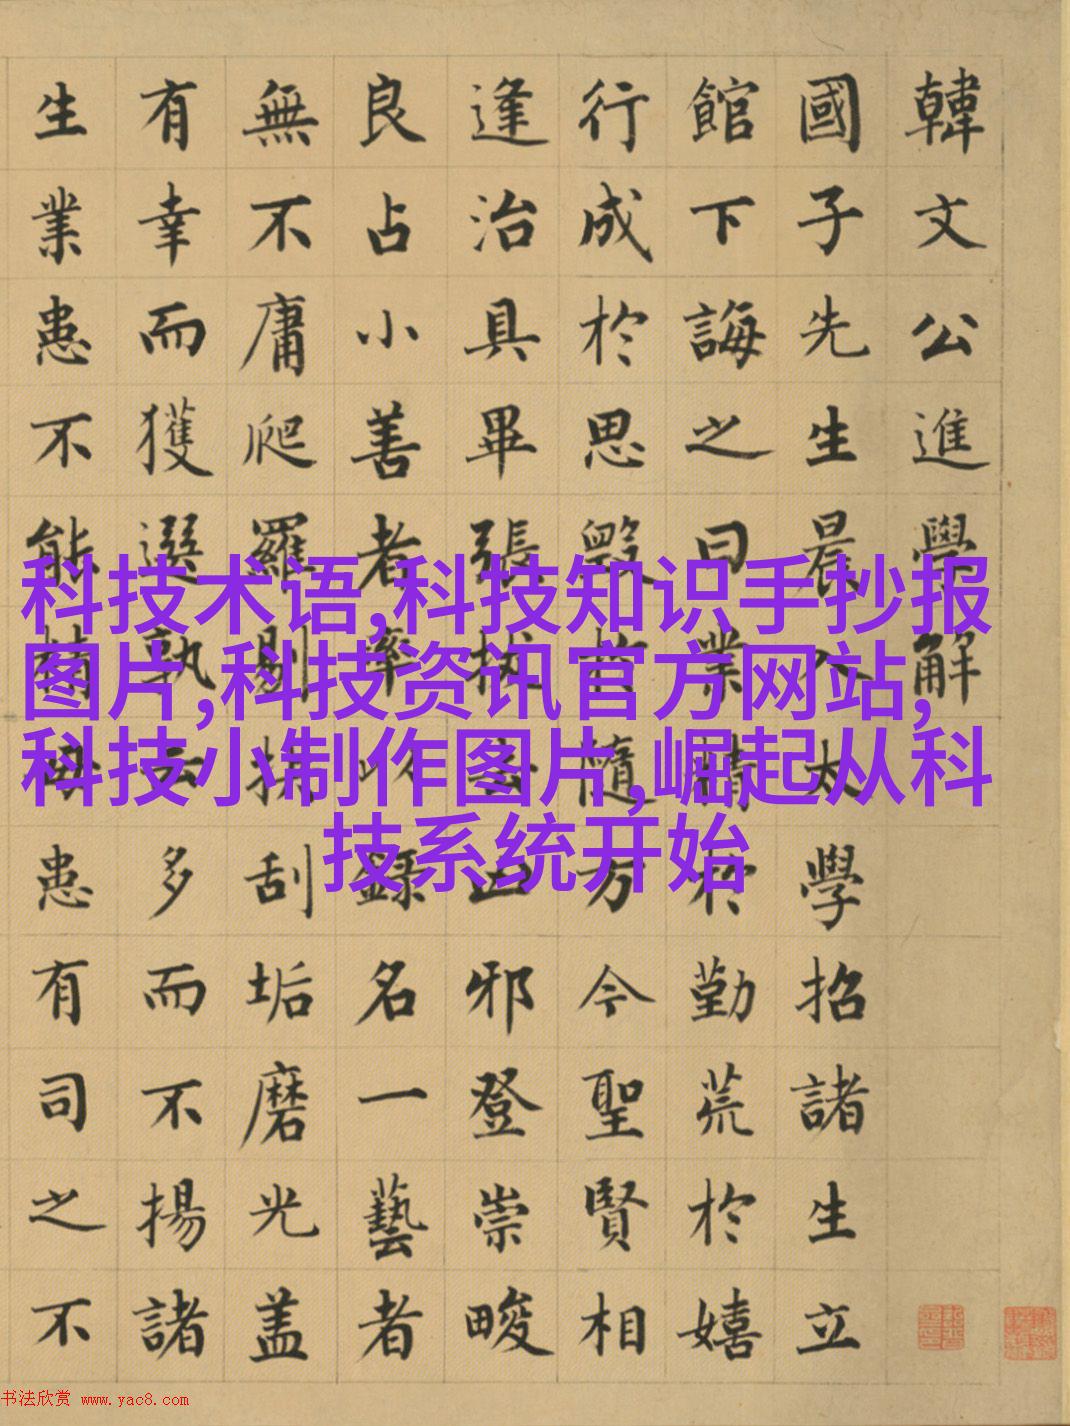 韓文公進學解
國子先生晨入太學招諸生立
館下誨之曰業精於勤荒於嬉
行成於思毀於隨方今聖賢相
逢治具畢張拔去凶邪登崇畯
良占小善者率以錄名一藝者
無不庸爬羅剔抉刮垢磨光盖
有幸而獲選孰云多而不揚諸
生業患不能精毋患有司之不
科技术语,科技知识手抄报
图片,科技资讯官方网站,
科技小制作图片,崛起从科
技系统开始
书法欣赏 www.yac8.com